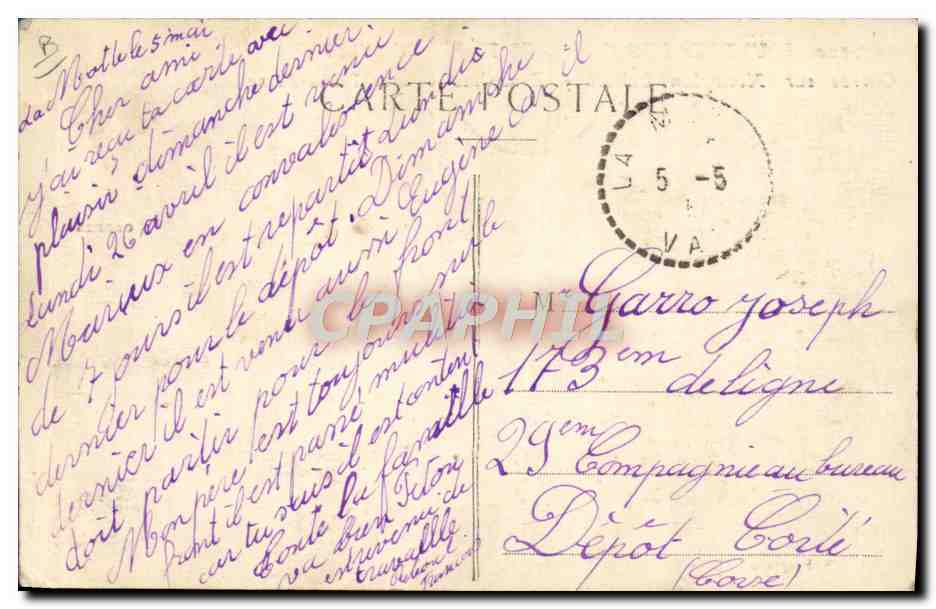 La Motte le 5 mai
Cher ami
j'ai reçu ta carte avec
plaisir dimanche dernier.
Lundi 26 avril il est venu
Marius en convalescence
de 7 jours il est repartit Lundis
dernier pour le dépôt. Dimanche
dernier il est venu aussi Eugène C il
doit partir pour le front
Mon père est toujours
il est passé
car tu sais il est conten
Toute la famille
va bien Titon
est revenu de
travaille
B
CARTE POSTALE
LA M
5 - 5
VA
CPAPHIL
Mr Garro Joseph
173em de ligne
29em Compagnie au bureau
Dépôt Corté
(Corse)